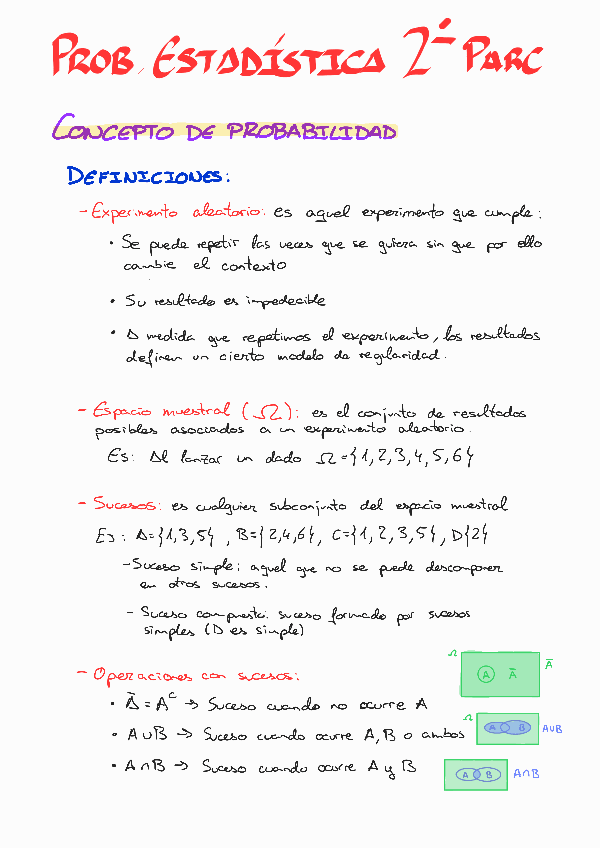 PROB. ESTADÍSTICA 2º PARC
CONCEPTO DE PROBABILIDAD
DEFINICIONES:
- Experimento aleatorio: es aquel experimento que cumple:
• Se puede repetir las veces que se quiera sin que por ello
cambie el contexto
• Su resultado es impedecible
• A medida que repetimos el experimento, los resultados
definen un cierto modelo de regularidad.
- Espacio muestral (Ω): es el conjunto de resultados
posibles asociados a un experimento aleatorio.
Es: Al lanzar un dado Ω={1,2,3,4,5,6}
- Sucesos: es cualquier subconjunto del espacio muestral
Es: A={1,3,5}, B={2,4,6}, C={1,2,3,5}, D{2}
- Suceso simple: aquel que no se puede descomponer
en otros sucesos.
- Suceso compuesto: suceso formado por sucesos
simples (D es simple)
- Operaciones con sucesos:
Ω A Ā Ā
• Ā = Aᶜ → Suceso cuando no ocurre A
• A∪B → Suceso cuando ocurre A, B o ambos
Ω A B A∪B
• A∩B → Suceso cuando ocurre A y B
A B A∩B